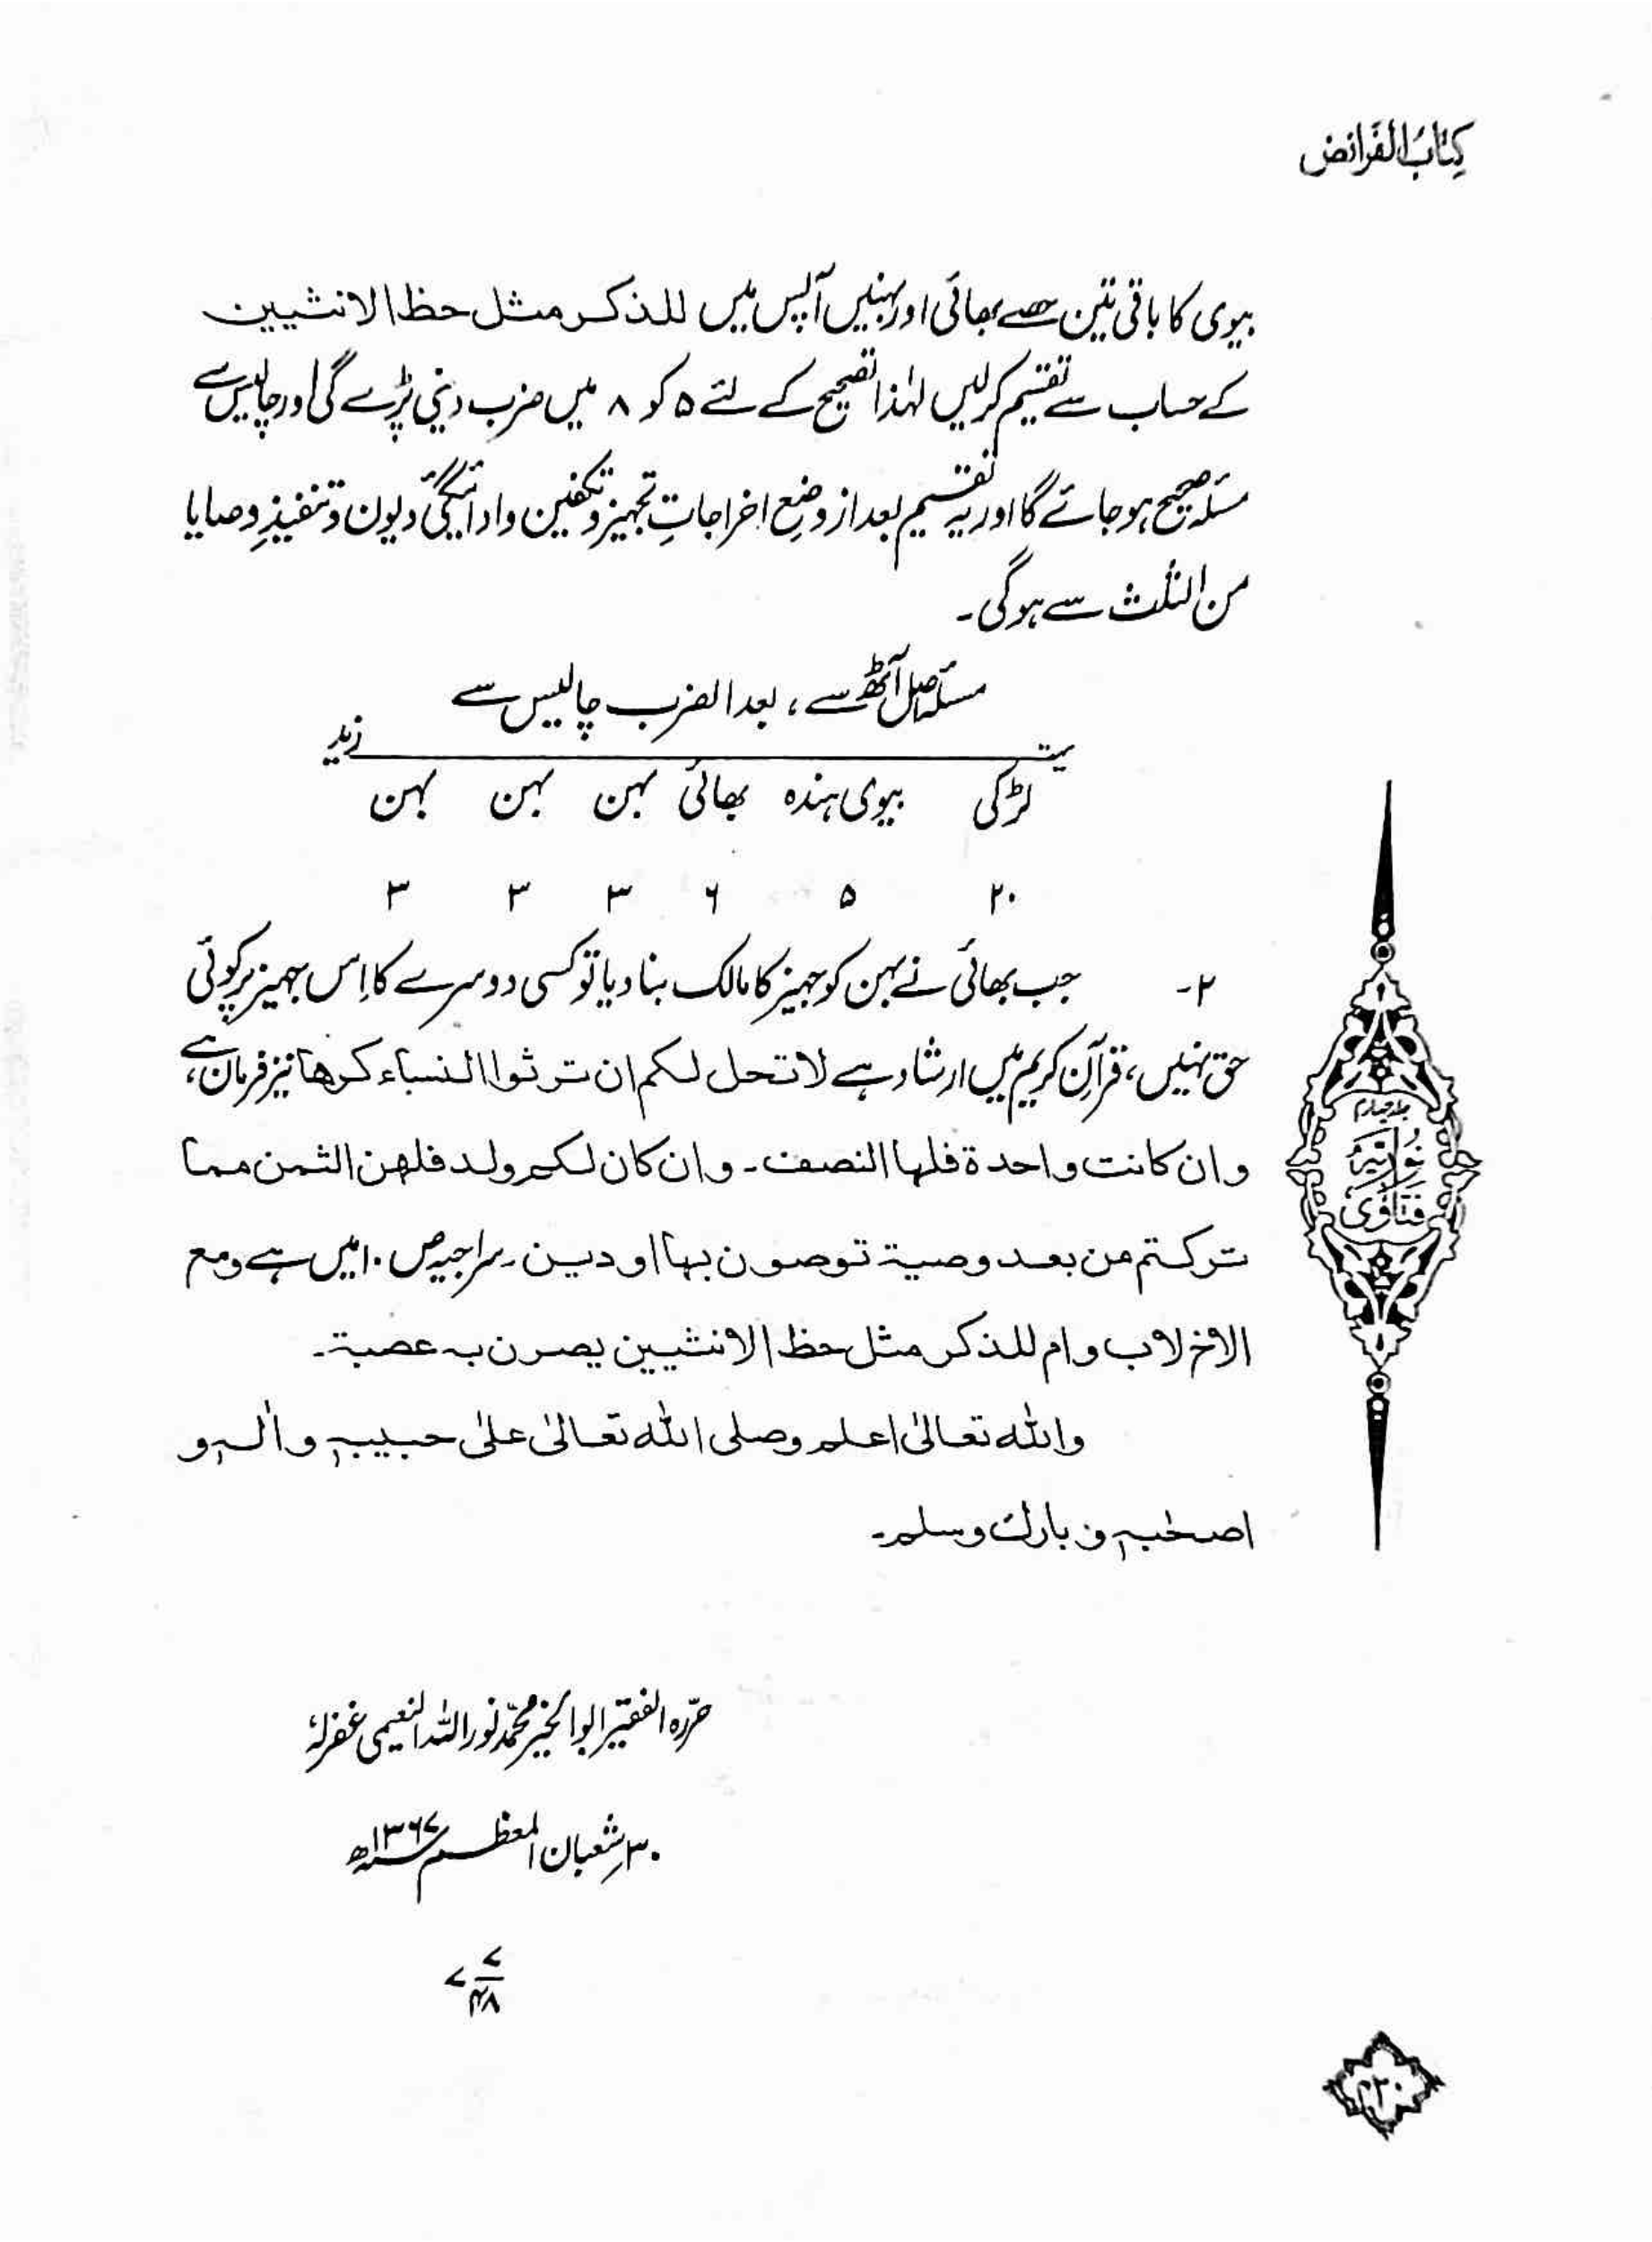 کِتَابُ الفَرائض
بیوی کا باقی تین حصے بھائی اور بہنیں آپس میں للذکر مثل حظ الانثیین
کے حساب سے تقسیم کرلیں لہٰذا تصحیح کے لئے ۵ کو ۸ میں ضرب دینی پڑے گی اور چالیس سے
مسئلہ صحیح ہو جائے گا اور یہ تقسیم بعد از وضع اخراجاتِ تجہیز و تکفین و ادائیگیٔ دیون و تنفیذِ وصایا
من الثلث سے ہوگی۔
مسئلہ اصل آٹھ سے، بعد الضرب چالیس سے
میت زید
لڑکی بیوی ہندہ بھائی بہن بہن بہن
۲۰ ۵ ۶ ۳ ۳ ۳
۲- جب بھائی نے بہن کو جہیز کا مالک بنا دیا تو کسی دوسرے کا اِس جہیز پر کوئی
حق نہیں، قرآنِ کریم میں ارشاد ہے لا تحل لکم ان ترثوا النساء کرھا نیز فرمان ہے،
وان کانت واحدة فلہا النصف۔ وان کان لکم ولد فلھن الثمن مما
ترکتم من بعد وصیة توصون بہا او دین۔ سراجیہ ص ۱۰ میں ہے ومع
الاخ لاب وام للذکر مثل حظ الانثیین یصرن بہ عصبة۔
واللہ تعالیٰ اعلم وصلی اللہ تعالیٰ علیٰ حبیبہٖ واٰلہٖ و
اصحٰبہٖ و بارک وسلم۔
حرّرہ الفقیر ابوالخیر محمّد نور اللہ النعیمی غفرلہٗ
۳۰ شعبان المعظم سنہ ۱۳۶۷ھ
۷
۷ ۴۸
جلد چہارم
نُورِیَّہ
فَتَاوٰی
۴۲۰